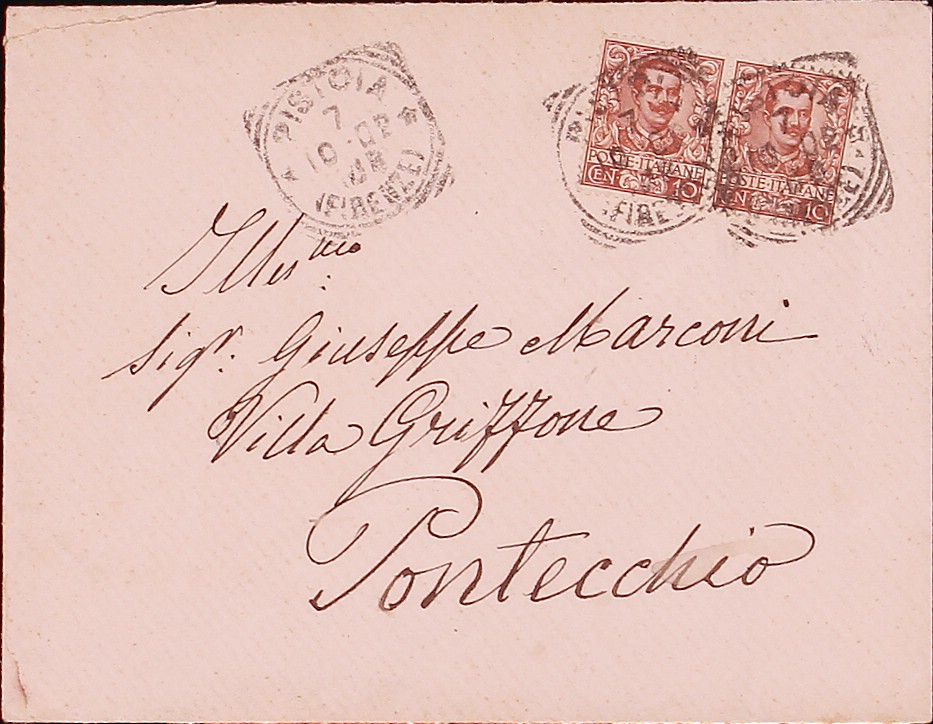 PISTOIA
7
10-02
(FIRENZE)
POSTE·ITALIANE
CEN 10
POSTE·ITALIANE
CEN 10
Illes mo
Sigr. Giuseppe Marconi
Villa Griffone
Pontecchio